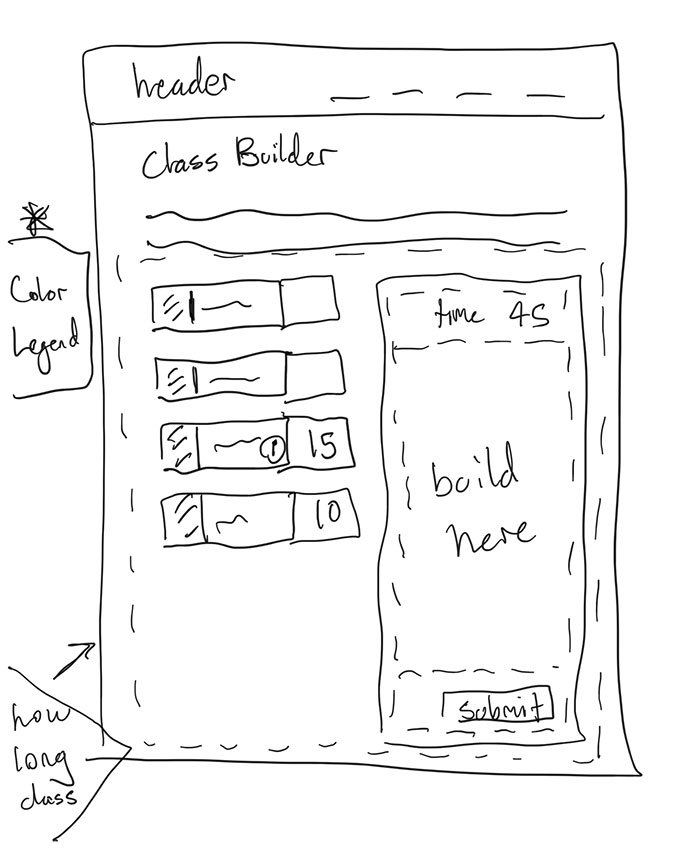 header
Class Builder
Color
Legend
time 45
15
10
build
here
submit
how
long
class